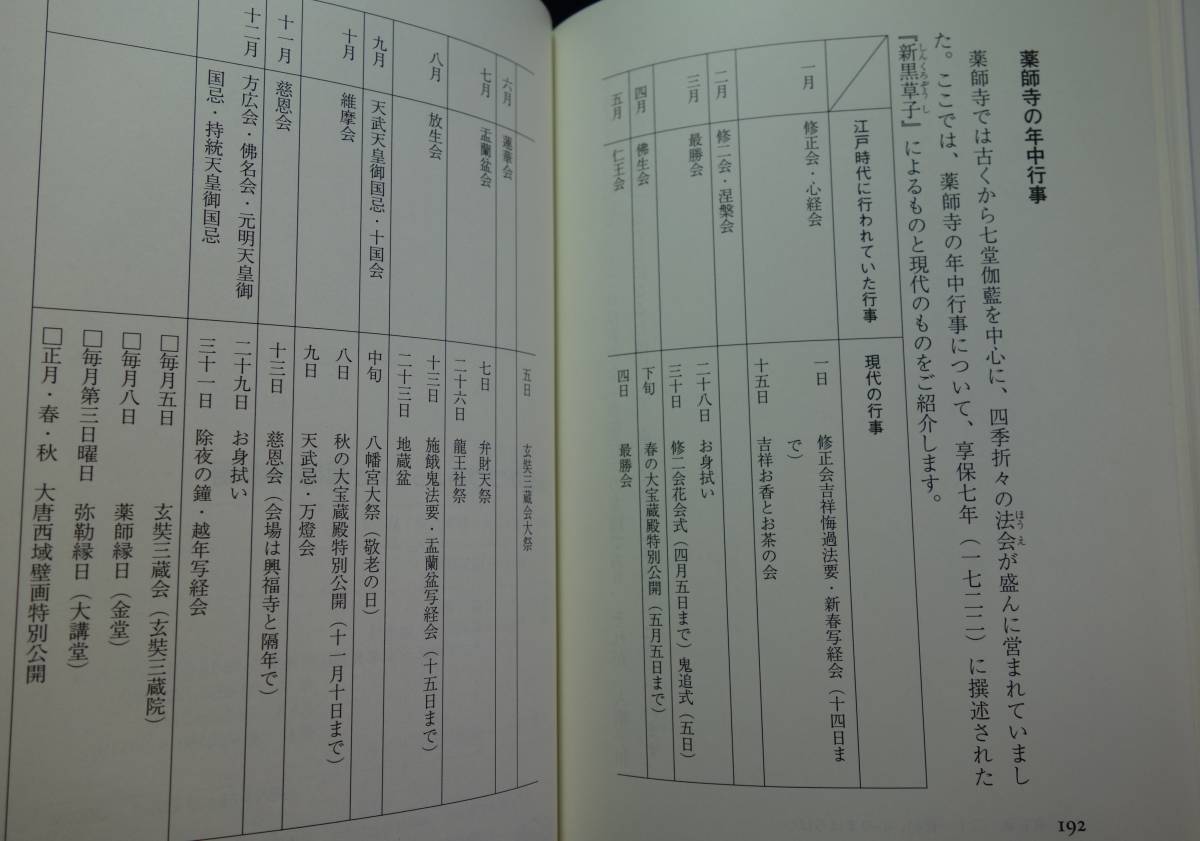 薬師寺の年中行事
薬師寺では古くから七堂伽藍を中心に、四季折々の法会が盛んに営まれていまし
ほうえ
た。ここでは、薬師寺の年中行事について、享保七年（一七二二）に撰述された
『新黒草子』によるものと現代のものをご紹介します。
しんくろぞうし
江戸時代に行われていた行事
現代の行事
一月
修正会・心経会
一日 修正会吉祥悔過法要・新春写経会（十四日ま
で）
十五日 吉祥お香とお茶の会
二月
修二会・涅槃会
三月
最勝会
二十八日 お身拭い
三十日 修二会花会式（四月五日まで）鬼追式（五日）
四月
佛生会
下旬 春の大宝蔵殿特別公開（五月五日まで）
五月
仁王会
四日 最勝会
192
五日 玄奘三蔵会大祭
六月
蓮華会
七月
盂蘭盆会
七日 弁財天祭
二十六日 龍王社祭
八月
放生会
十三日 施餓鬼法要・盂蘭盆写経会（十五日まで）
二十三日 地蔵盆
九月
天武天皇御国忌・十国会
中旬 八幡宮大祭（敬老の日）
十月
維摩会
八日 秋の大宝蔵殿特別公開（十一月十日まで）
九日 天武忌・万燈会
十一月
慈恩会
十三日 慈恩会（会場は興福寺と隔年で）
十二月
方広会・佛名会・元明天皇御
国忌・持統天皇御国忌
二十九日 お身拭い
三十一日 除夜の鐘・越年写経会
□毎月五日 玄奘三蔵会（玄奘三蔵院）
□毎月八日 薬師縁日（金堂）
□毎月第三日曜日 弥勒縁日（大講堂）
□正月・春・秋 大唐西域壁画特別公開